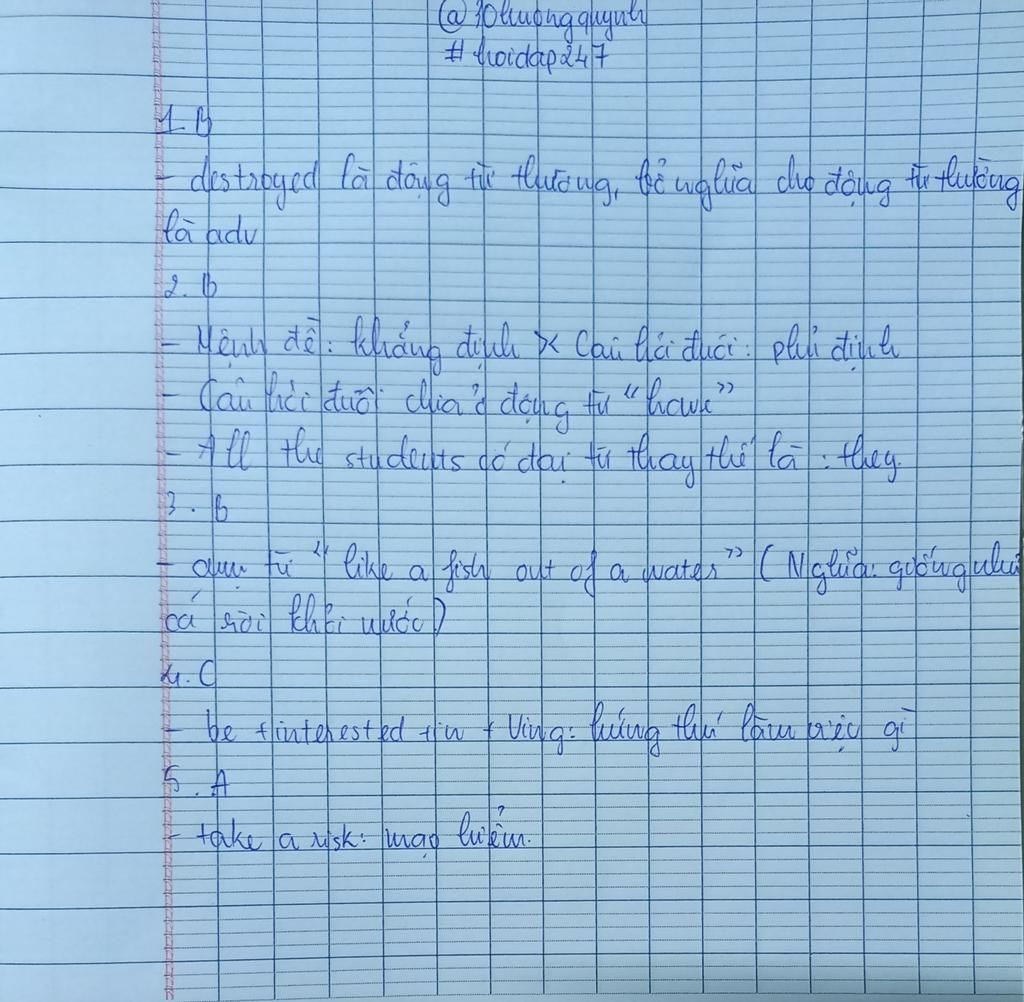 @10thuongquynh
# hoidap247
1. B
- destroyed là động từ thường, bổ nghĩa cho động từ thường
là adv
2. B
- Mệnh đề: khẳng định >< Câu hỏi đuôi: phủ định
- Câu hỏi đuôi chia ở động từ "have"
- All the students có đại từ thay thế là : they.
3. B
- cụm từ "like a fish out of a water" (Nghĩa: giống như
cá rời khỏi nước)
4. C
- be + interested + in + Ving: hứng thú làm việc gì
5. A
- take a risk: mạo hiểm.